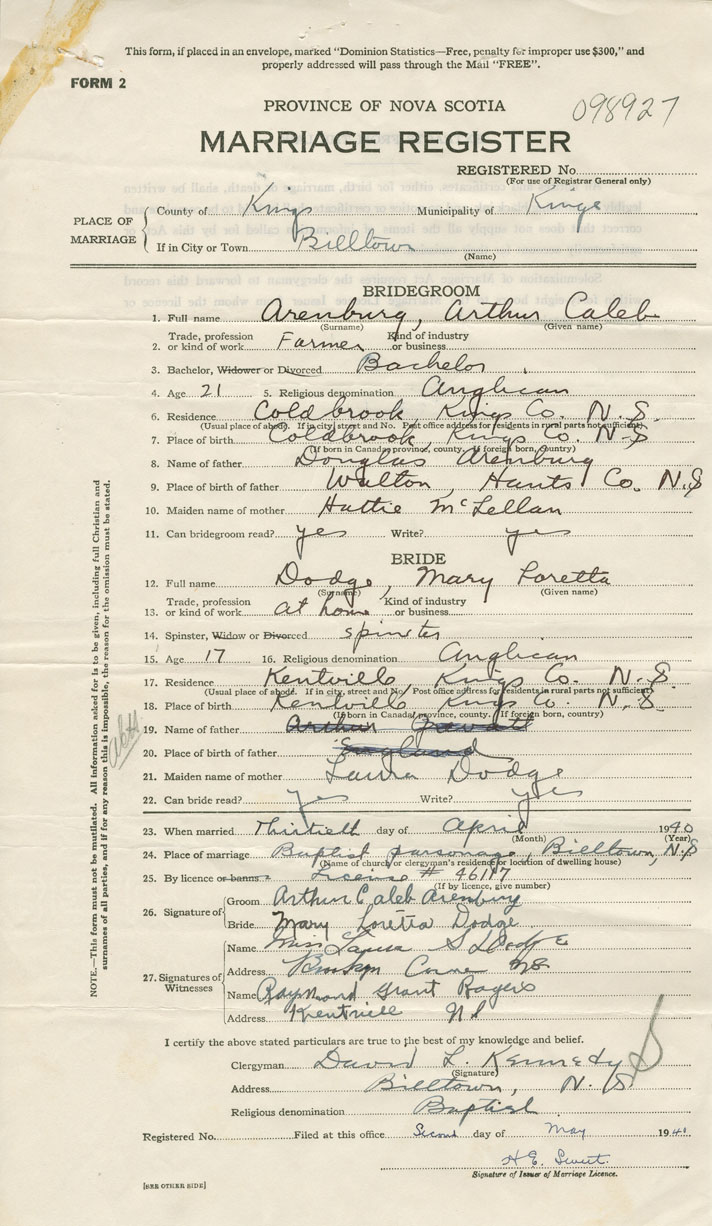 This form, if placed in an envelope, marked "Dominion Statistics—Free, penalty for improper use $300," and
properly addressed will pass through the Mail "FREE".
FORM 2
PROVINCE OF NOVA SCOTIA
098927
MARRIAGE REGISTER
REGISTERED No.
(For use of Registrar General only)
PLACE OF MARRIAGE
County of Kings Municipality of Kings
If in City or Town Billtown
(Name)
BRIDEGROOM
1. Full name Arenburg, Arthur Caleb
(Surname) (Given name)
2. Trade, profession or kind of work Farmer Kind of industry or business
3. Bachelor, Widower or Divorced Bachelor
4. Age 21 5. Religious denomination Anglican
6. Residence Coldbrook, Kings Co. N.S.
(Usual place of abode. If in city, street and No. Post office address for residents in rural parts not sufficient)
7. Place of birth Coldbrook, Kings Co. N.S
(If born in Canada, province, county. If foreign born, country)
8. Name of father Douglas Arenburg
9. Place of birth of father Walton, Hants Co. N.S
10. Maiden name of mother Hattie McLellan
11. Can bridegroom read? yes Write? yes
BRIDE
12. Full name Dodge, Mary Loretta
(Surname) (Given name)
13. Trade, profession or kind of work at home Kind of industry or business
14. Spinster, Widow or Divorced spinster
15. Age 17 16. Religious denomination Anglican
17. Residence Kentville Kings Co. N.S.
(Usual place of abode. If in city, street and No. Post office address for residents in rural parts not sufficient)
18. Place of birth Kentville Kings Co. N.S.
(If born in Canada, province, county. If foreign born, country)
19. Name of father Arthur
20. Place of birth of father England
21. Maiden name of mother Laura Dodge
22. Can bride read? yes Write? yes
23. When married Thirtieth day of April 1940
(Month) (Year)
24. Place of marriage Baptist parsonage, Billtown, N.S
(Name of church or clergyman's residence or location of dwelling house)
25. By licence or banns License # 46117
(If by licence, give number)
26. Signature of
Groom Arthur Caleb Arenburg
Bride Mary Loretta Dodge
27. Signatures of Witnesses
Name Miss Laura S Dodge
Address Corner NS
Name Raymond Grant Rogers
Address Kentville NS
I certify the above stated particulars are true to the best of my knowledge and belief.
Clergyman David L. Kennedy
(Signature)
Address Billtown, N.S
Religious denomination Baptist
Registered No. Filed at this office Second day of May 1940
H.E. Sweet.
Signature of Issuer of Marriage Licence.
[SEE OTHER SIDE]
NOTE.—This form must not be mutilated. All information asked for is to be given, including full Christian and
surnames of all parties, and if for any reason this is impossible, the reason for the omission must be stated.